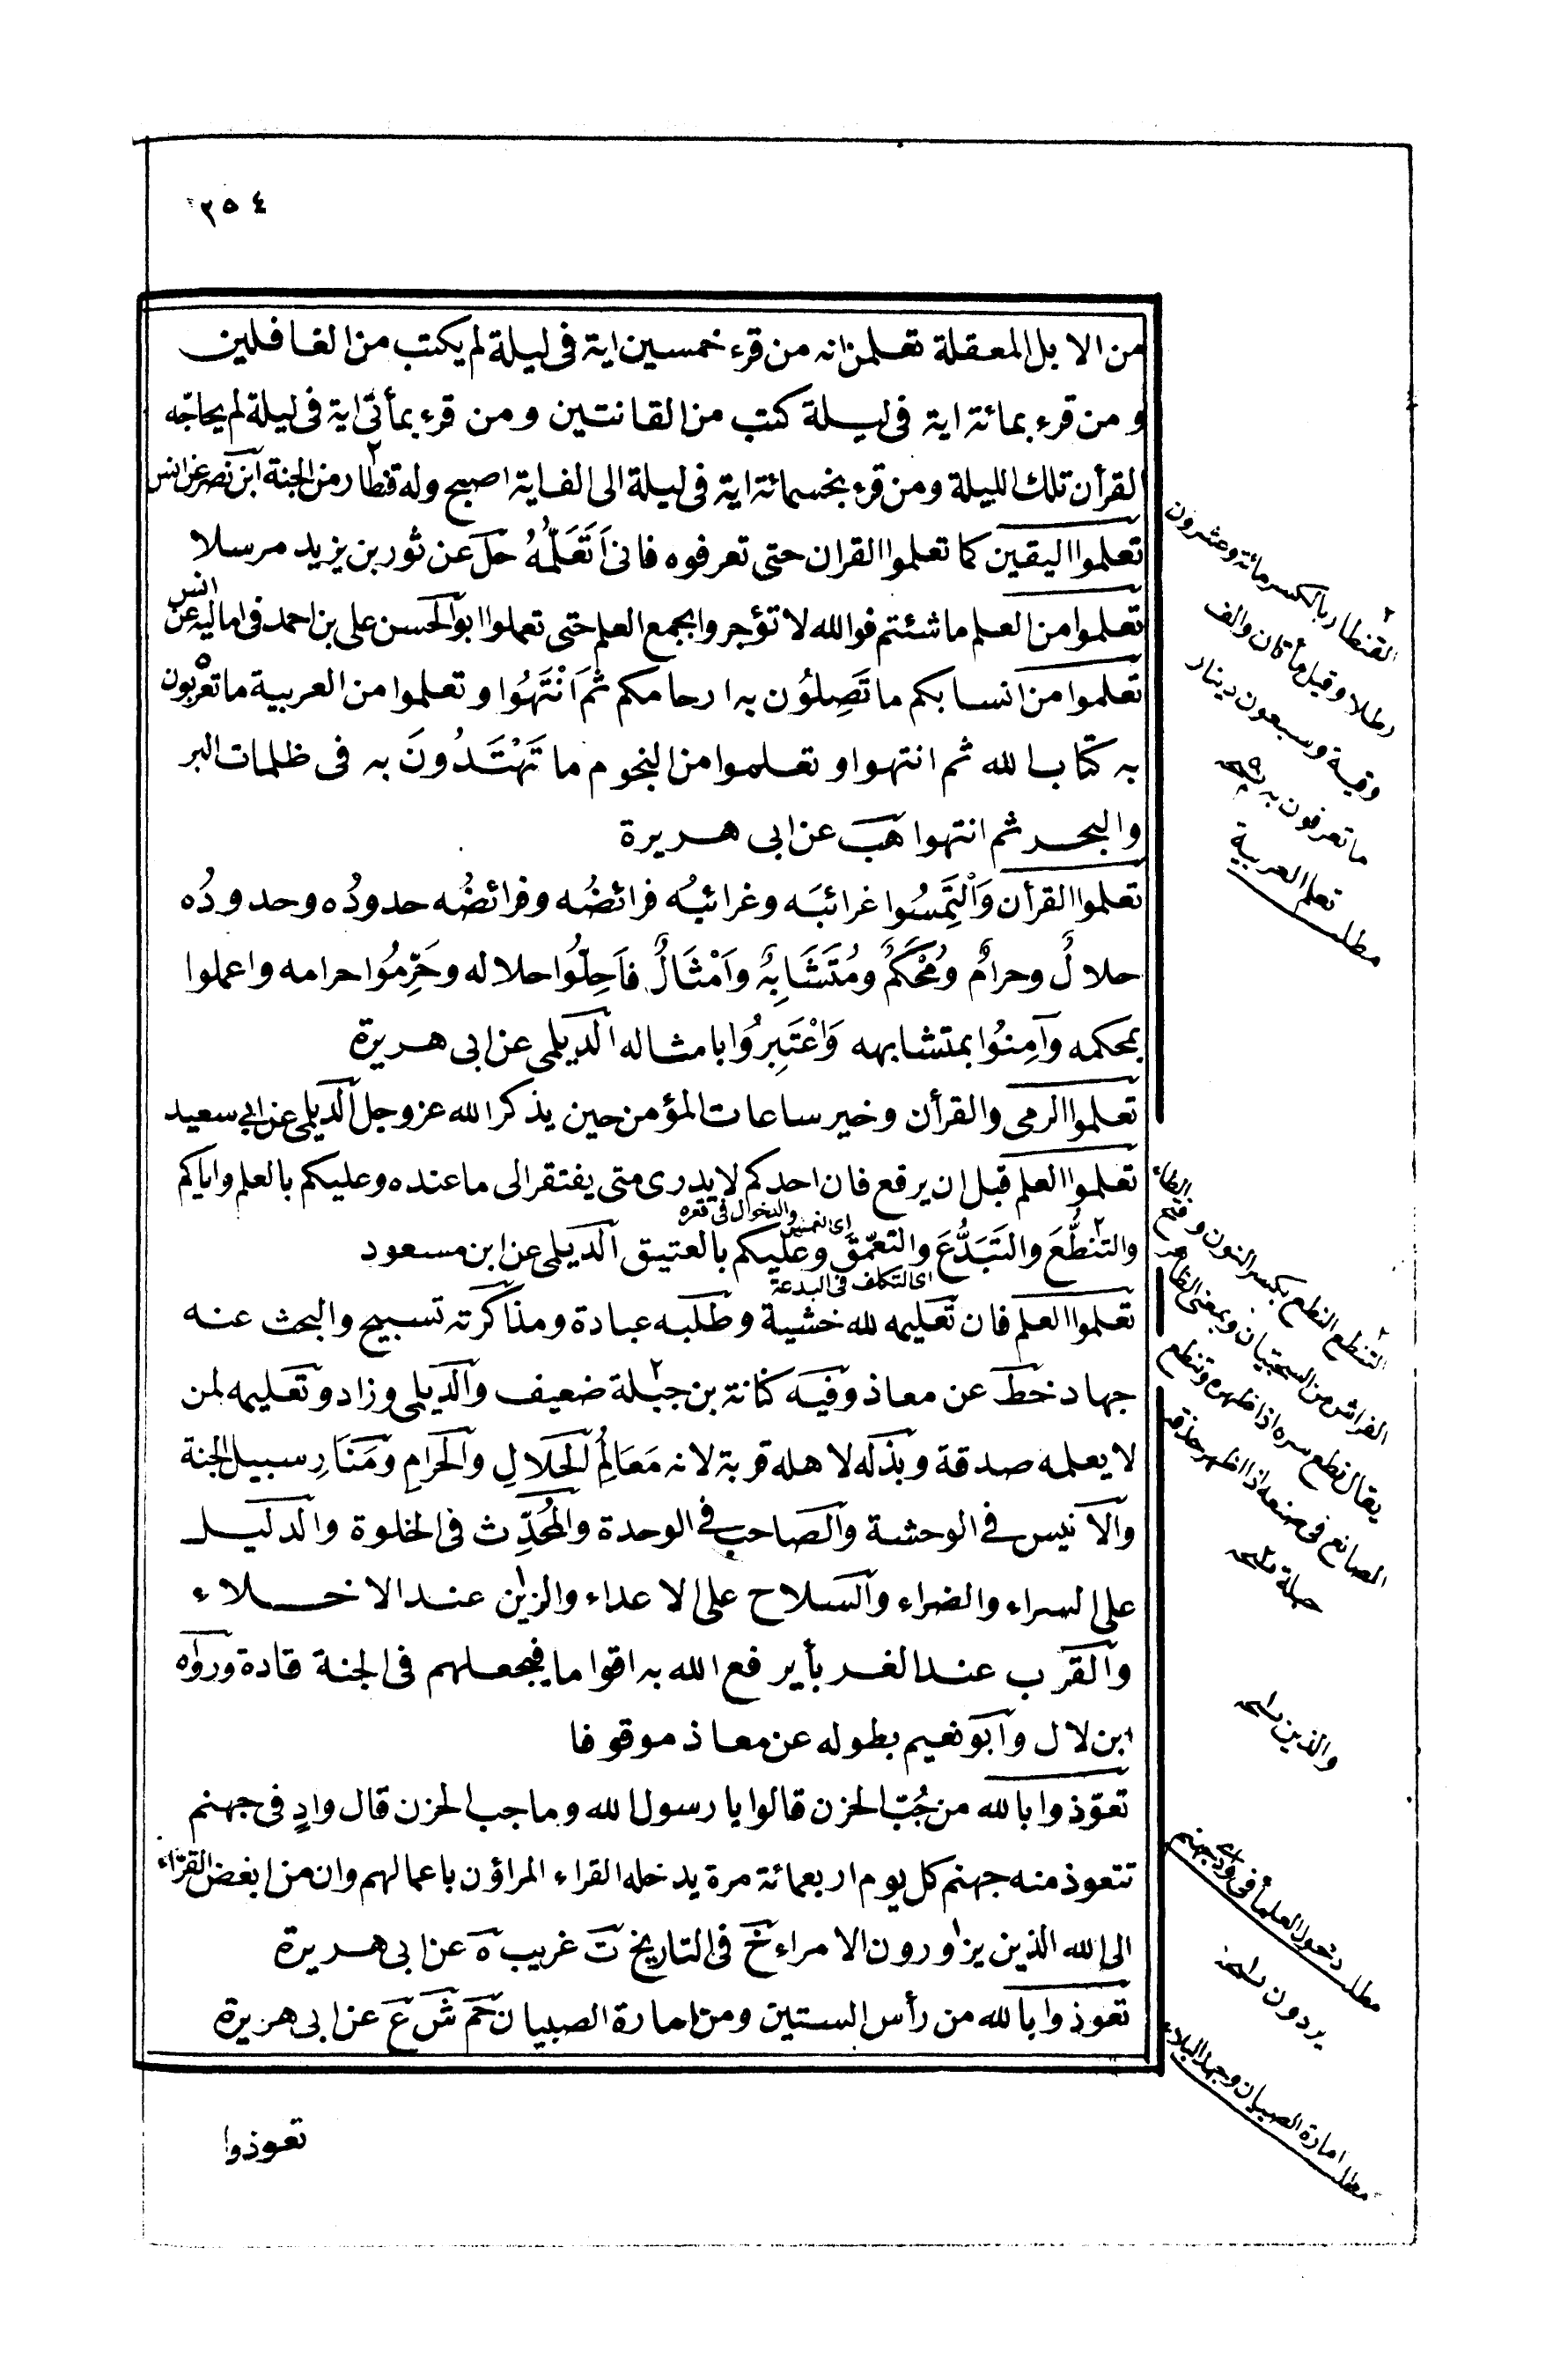 ٢٥٤
من الابل المعقلة تعلمن انه من قرء خمسين اية فى ليلة لم يكتب من الغافلين
و من قرء بمائة اية فى ليلة كتب من القانتين و من قرء بمأتى اية فى ليلة لم يحاجّه
القرأن تلك الليلة ومن قرء بخسمائة اية فى ليلة الى الف اية اصبح وله قنطار من الجنة ابن نصر عن انس
تعلموا اليقين كما تعلموا القران حتى تعرفوه فانى اَتَعَلَّمُهُ حل عن ثور بن يزيد مرسلا
تعلموا من العلم ما شئتم فوالله لا تؤجروا بجمع العلم حتى تعملوا ابو الحسن على بن احمد فى اماليه عن انس
تعلموا من انسابكم ما تَصِلُون به ارحامكم ثم اَنْتَهُوا و تعلموا من العربية ما تعربون
به كتاب الله ثم انتهوا و تعلموا من النجوم ما تَهْتَدُونَ به فى ظلمات البر
والبحر ثم انتهوا هب عن ابى هريرة
تعلموا القرأن وَالْتَمِسُوا غرائبَه وغرائبُه فرائضُه وفرائضُه حدودُه وحدودُه
حلالٌ وحرامٌ ومُحْكَمٌ ومُتَشَابِهٌ واَمْثَالٌ فاَحِلُّوا حلاله وحَرِّمُوا حرامه واعملوا
بمحكمه وآمِنُوا بمتشابهه وَاعْتَبِرُوا بامثاله الديلمى عن ابى هريرة
تعلموا الرمى والقرأن وخير ساعات المؤمن حين يذكر الله عز وجل الديلمى عن ابى سعيد
تعلموا العلم قبل ان يرفع فان احدكم لا يدرى متى يفتقر الى ما عنده وعليكم بالعلم واياكم
اى الغمس والدخول فى قعره
والتنطُّعَ والتَبَدُّعَ والتعمّقَ وعليكم بالعتيق الديلمى عن ابن مسعود
اى التكلف فى البدعة
تعلموا العلم فان تعليمه لله خشية وطلبه عبادة ومذاكرته تسبيح والبحث عنه
جهاد خط عن معاذ وفيه كنانة بن جبلة ضعيف والديلمى وزاد وتعليمه لمن
لا يعلمه صدقة وبذله لاهله قربة لانه مَعَالِمُ الحَلالِ والحَرامِ ومَنَارِ سبيل الجنة
والانيس فى الوحشة والصاحب فى الوحدة والمُحَدِّث فى الخلوة والدليل
على السراء والضراء والسلاح على الاعداء والزين عند الاخلاء
والقرب عند الغرباء يرفع الله به اقواما فيجعلهم فى الجنة قادة ورواه
ابن لال وابو نعيم بطوله عن معاذ موقوفا
تعوّذوا بالله من جُبّ الحزن قالوا يا رسول الله وما جب الحزن قال وادٍ فى جهنم
تتعوذ منه جهنم كل يوم اربعمائة مرة يدخله القراء المراؤن باعمالهم وان من ابغض القرّاء
الى الله الذين يزاورون الامراء خ فى التاريخ ت غريب ه عن ابى هريرة
تعوذوا بالله من رأس الستين ومن امارة الصبيان حم ش ع عن ابى هريرة
تعوذوا
القنطار بالكسر مائة وعشرون
رطلا وقيل مأتان والف
وقية وسبعون دينار
ما تعرفون به نسخه
مطلب تعلم العربية
التنطع النطع بكسر النون وفتح الطاء
الفراش من السختيان وبمعنى الظاهر
يقال نطع سره اذا ظهره وتنطع
الصانع فى صنعه اذا اظهر حذقه
حبلة نسخه
والدين نسخه
مطلب دخول العلماء فى وادى جهنم
يردون نسخه
مطلب امارة الصبيان وجهد البلاء